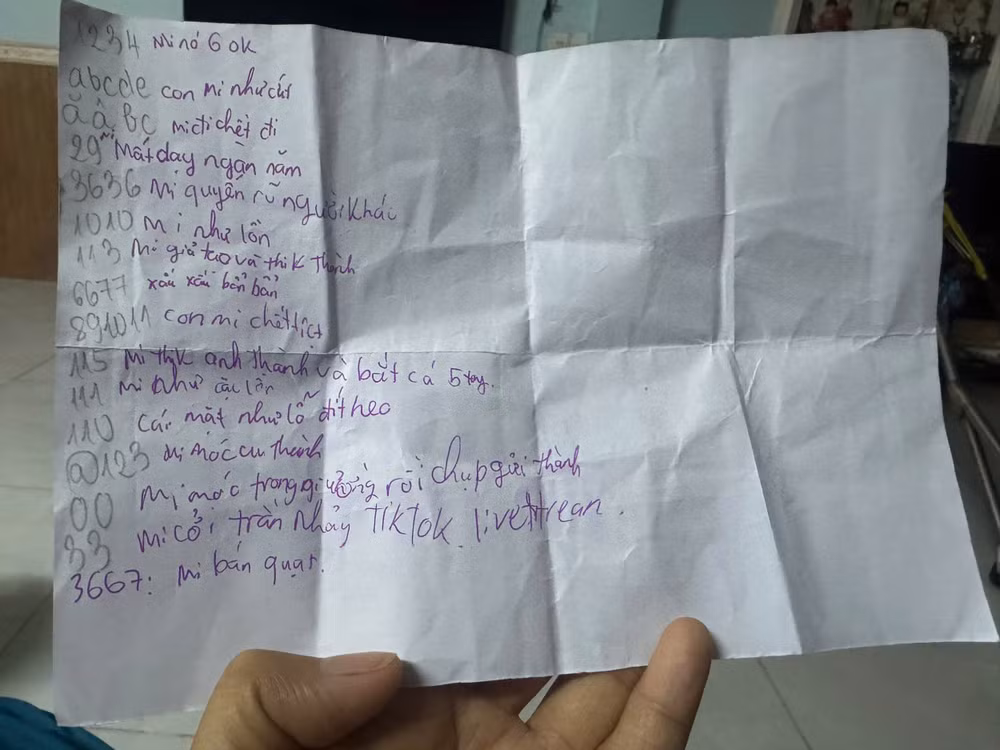 1234 Mi nó 6 ok
abcde con mi như cứt
ă â, bc mi đi chết đi
29 Mất dạy ngàn năm
3636 Mị quyến rũ người khác
1010 Mi như lồn
113 Mi giả tạo và thik Thành
6677 xấu xấu bẩn bẩn
891011 con mi chết tiệt
115 Mi thjk anh thành và bắt cá 5 tay.
111 Mi như cặc lồn
110 Cái mặt như lỗ đít heo
@123 Mi móc cu thành
00 Mi móc trong giường rồi chụp gửi thành
33 mi cởi trần nhảy TikTok livetrean.
3667: Mi bán quạt.